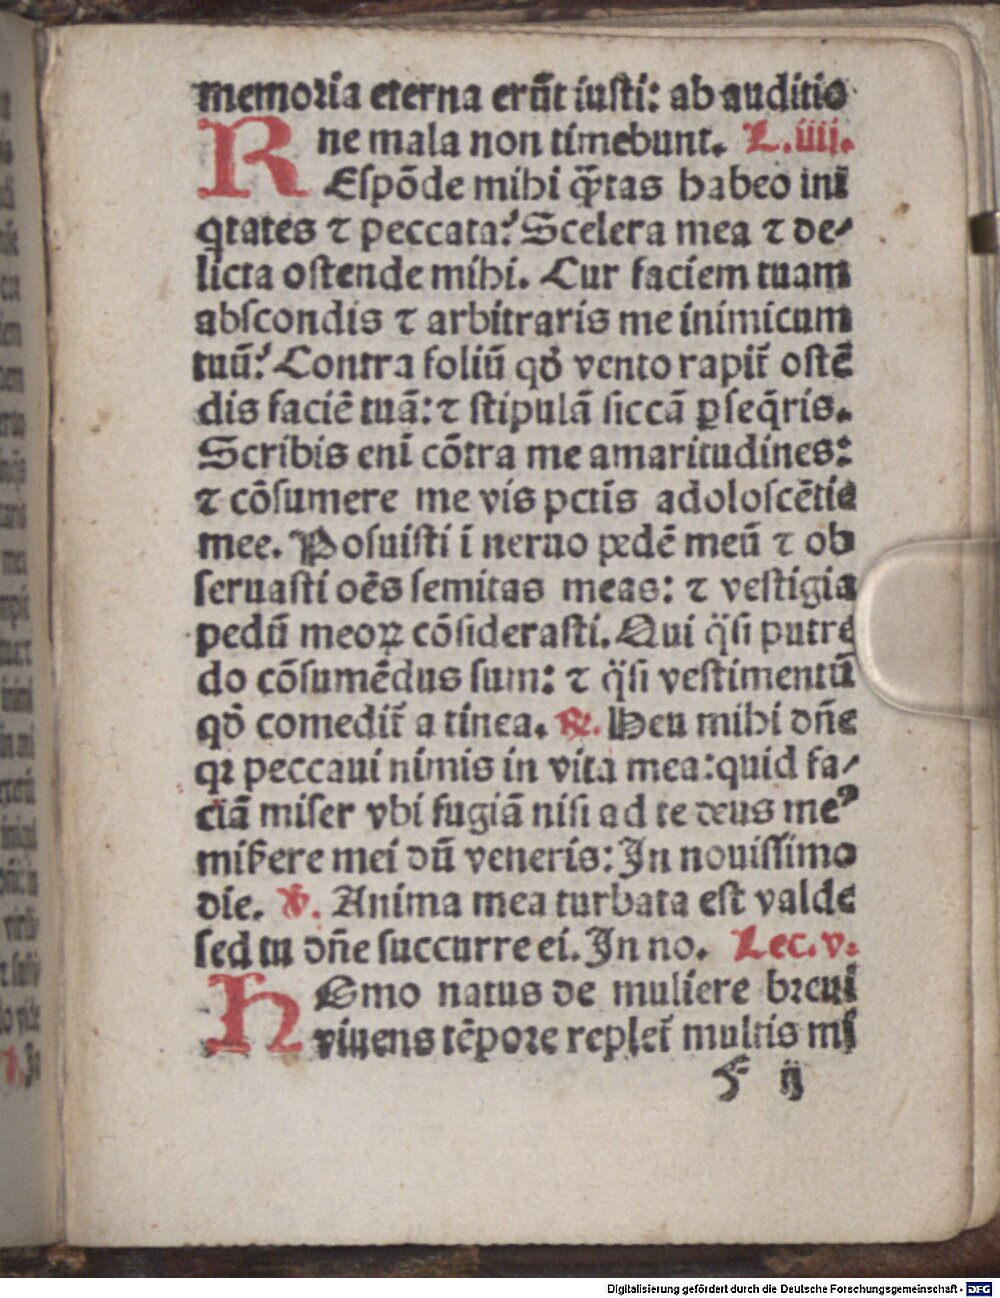 memoria eterna erūt iusti: ab auditio
ne mala non timebunt. L.iiij.
REspōde mihi q̄tas habeo ini
qtates ⁊ peccata? Scelera mea ⁊ de-
licta ostende mihi. Cur faciem tuam
abscondis ⁊ arbitraris me inimicum
tuū? Contra foliū qđ vento rapit̄ ostē
dis faciē tuā: ⁊ stipulā siccā ꝑseq̄ris.
Scribis enī cōtra me amaritudines:
⁊ cōsumere me vis pctis adoloscētie
mee. Posuisti ī neruo pedē meū ⁊ ob
seruasti oēs semitas meas: ⁊ vestigia
pedū meoꝝ cōsiderasti. Qui q̄si putre
do cōsumēdus sum: ⁊ q̄si vestimentū
qđ comedit̄ a tinea. ℟. Heu mihi dn̄e
qꝛ peccaui nimis in vita mea: quid fa-
ciā miser vbi fugiā nisi ad te deus meꝰ
miẜere mei dū veneris: In nouissimo
die. ℣. Anima mea turbata est valde
sed tu dn̄e succurre ei. In no. Lec.v.
HOmo natus de muliere breui
viuens tēpore replet̄ multis mi
f ij
Digitalisierung gefördert durch die Deutsche Forschungsgemeinschaft - DFG